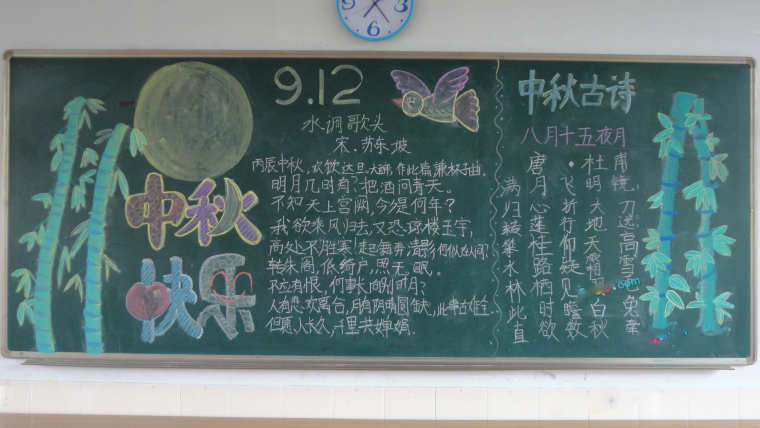 9.12
中秋
快乐
水调歌头
宋.苏东坡
丙辰中秋,欢饮达旦,大醉,作此篇兼怀子由.
明月几时有?把酒问青天。
不知天上宫阙,今夕是何年?
我欲乘风归去,又恐琼楼玉宇,
高处不胜寒,起舞弄清影,何似在人间?
转朱阁,低绮户,照无眠。
不应有恨,何事长向别时圆?
人有悲欢离合,月有阴晴圆缺,此事古难全.
但愿人长久,千里共婵娟.
中秋古诗
八月十五夜月
唐·杜甫
满月飞明镜,
归心折大刀
转蓬行地远
攀桂仰天高
水路疑霜雪
林栖见
此时瞻白兔
直欲数秋